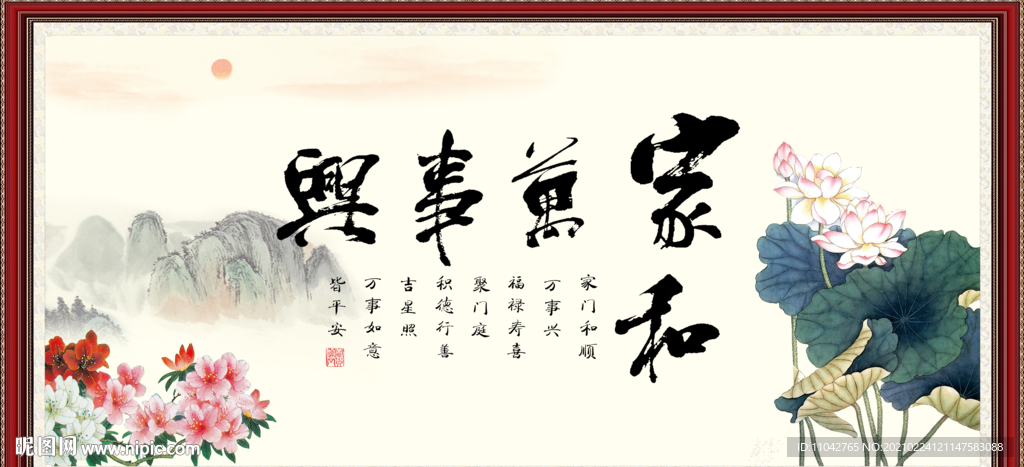 家和
萬事興
家门和顺
万事兴
福禄寿喜
聚门庭
积德行善
吉星照
万事如意
皆平安
昵图网 www.nipic.com
ID:11042765 NO:20210224121147583088